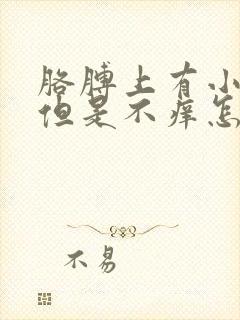 胳膊上有小
但是不痒怎
不易